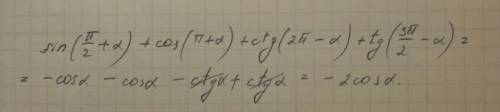 sin(π/2+α) + cos(π+α) + ctg(2π−α) + tg(3π/2−α) =
= −cosα − cosα − ctgα + ctgα = −2cosα.